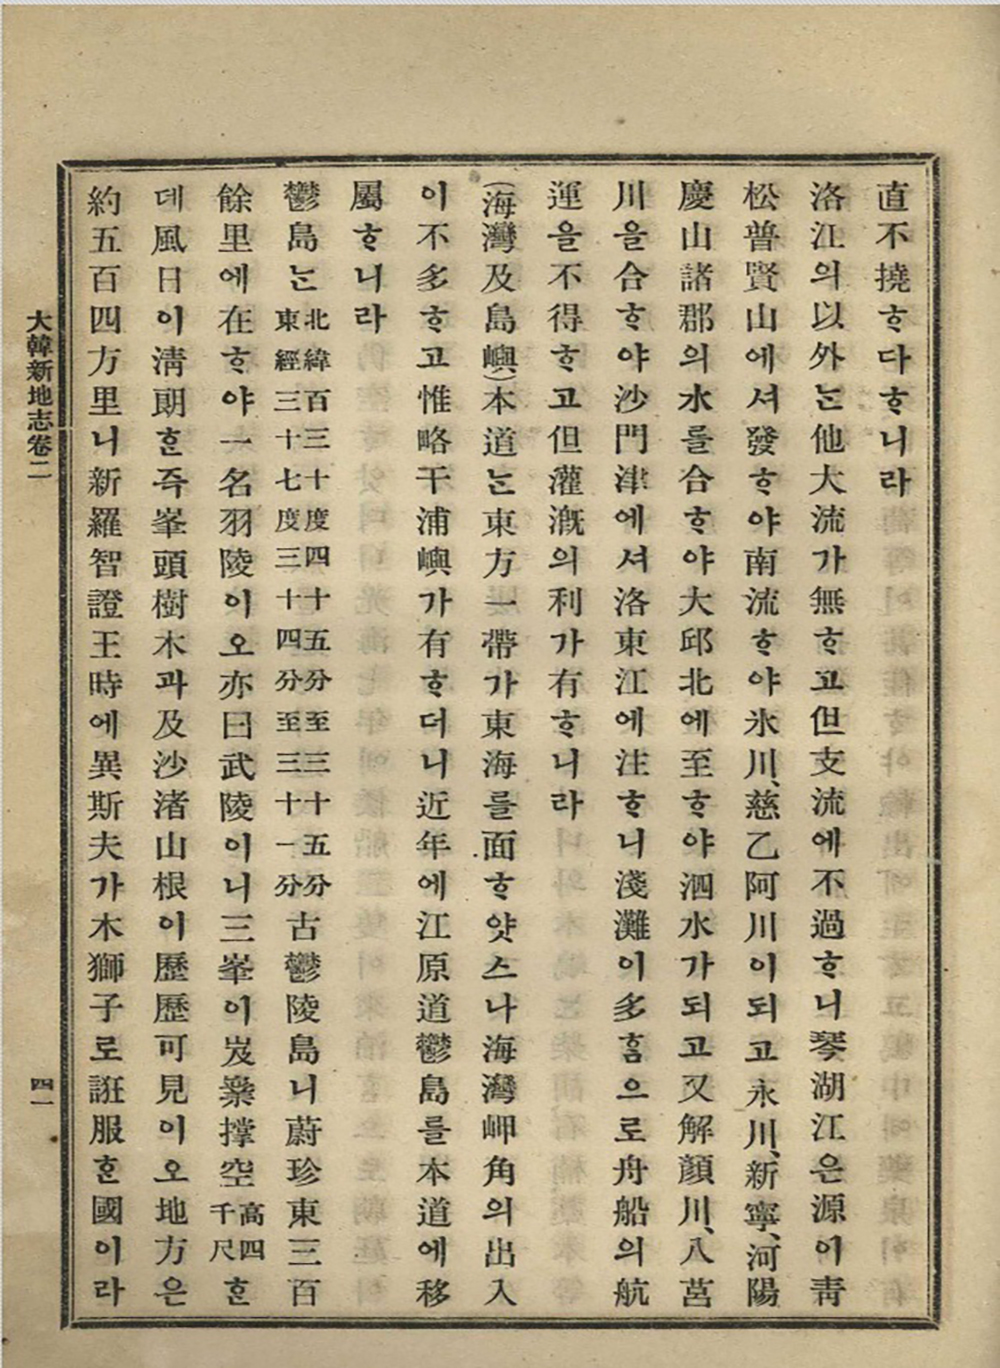 直不撓ᄒᆞ다ᄒᆞ니라
洛江의以外ᄂᆞᆫ他大流가無ᄒᆞ고但支流에不過ᄒᆞ니琴湖江은源이靑
松普賢山에셔發ᄒᆞ야南流ᄒᆞ야氷川、慈乙阿川이되고永川、新寧、河陽
慶山諸郡의水를合ᄒᆞ야大邱北에至ᄒᆞ야泗水가되고又解顔川、八莒
川을合ᄒᆞ야沙門津에셔洛東江에注ᄒᆞ니淺灘이多ᄒᆞᆷ으로舟船의航
運을不得ᄒᆞ고但灌漑의利가有ᄒᆞ니라
(海灣及島嶼)本道ᄂᆞᆫ東方一帶가東海를面ᄒᆞ얏스나海灣岬角의出入
이不多ᄒᆞ고惟略干浦嶼가有ᄒᆞ더니近年에江原道鬱島를本道에移
屬ᄒᆞ니라
鬱島ᄂᆞᆫ北緯百三十度四十五分至三十五分東經三十七度三十四分至三十一分古鬱陵島니蔚珍東三百
餘里에在ᄒᆞ야一名羽陵이오亦曰武陵이니三峯이岌嶪撑空高四千尺ᄒᆞᆫ
데風日이淸朗ᄒᆞᆫ즉峯頭樹木과及沙渚山根이歷歷可見이오地方은
約五百四方里니新羅智證王時에異斯夫가木獅子로誑服ᄒᆞᆫ國이라
大韓新地志卷二
四一